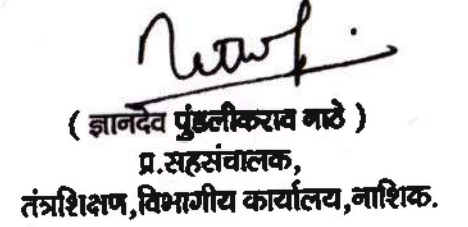 ( ज्ञानदेव पुंडलीकराव नाठे )
प्र.सहसंचालक,
तंत्रशिक्षण,विभागीय कार्यालय,नाशिक.